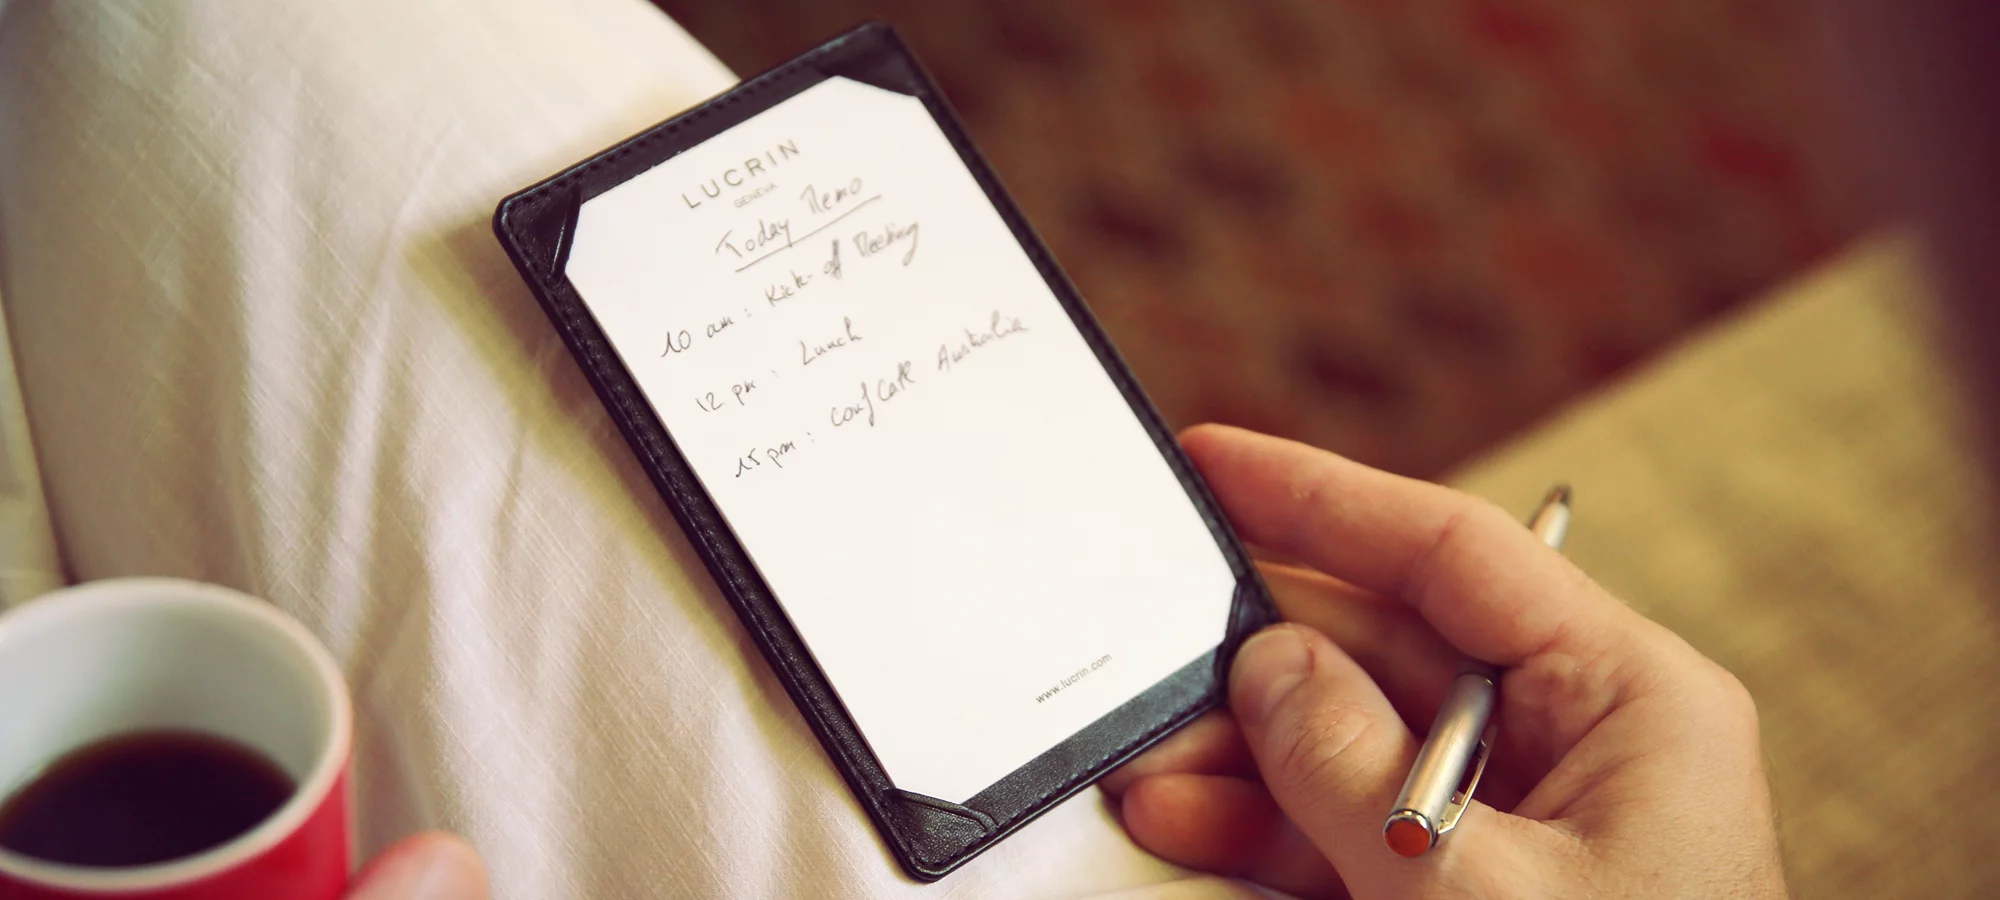 LUCRIN
GENEVA
Today Memo
10 am : Kick-of Meeting
12 pm : Lunch
15 pm : Conf Call Australia
www.lucrin.com